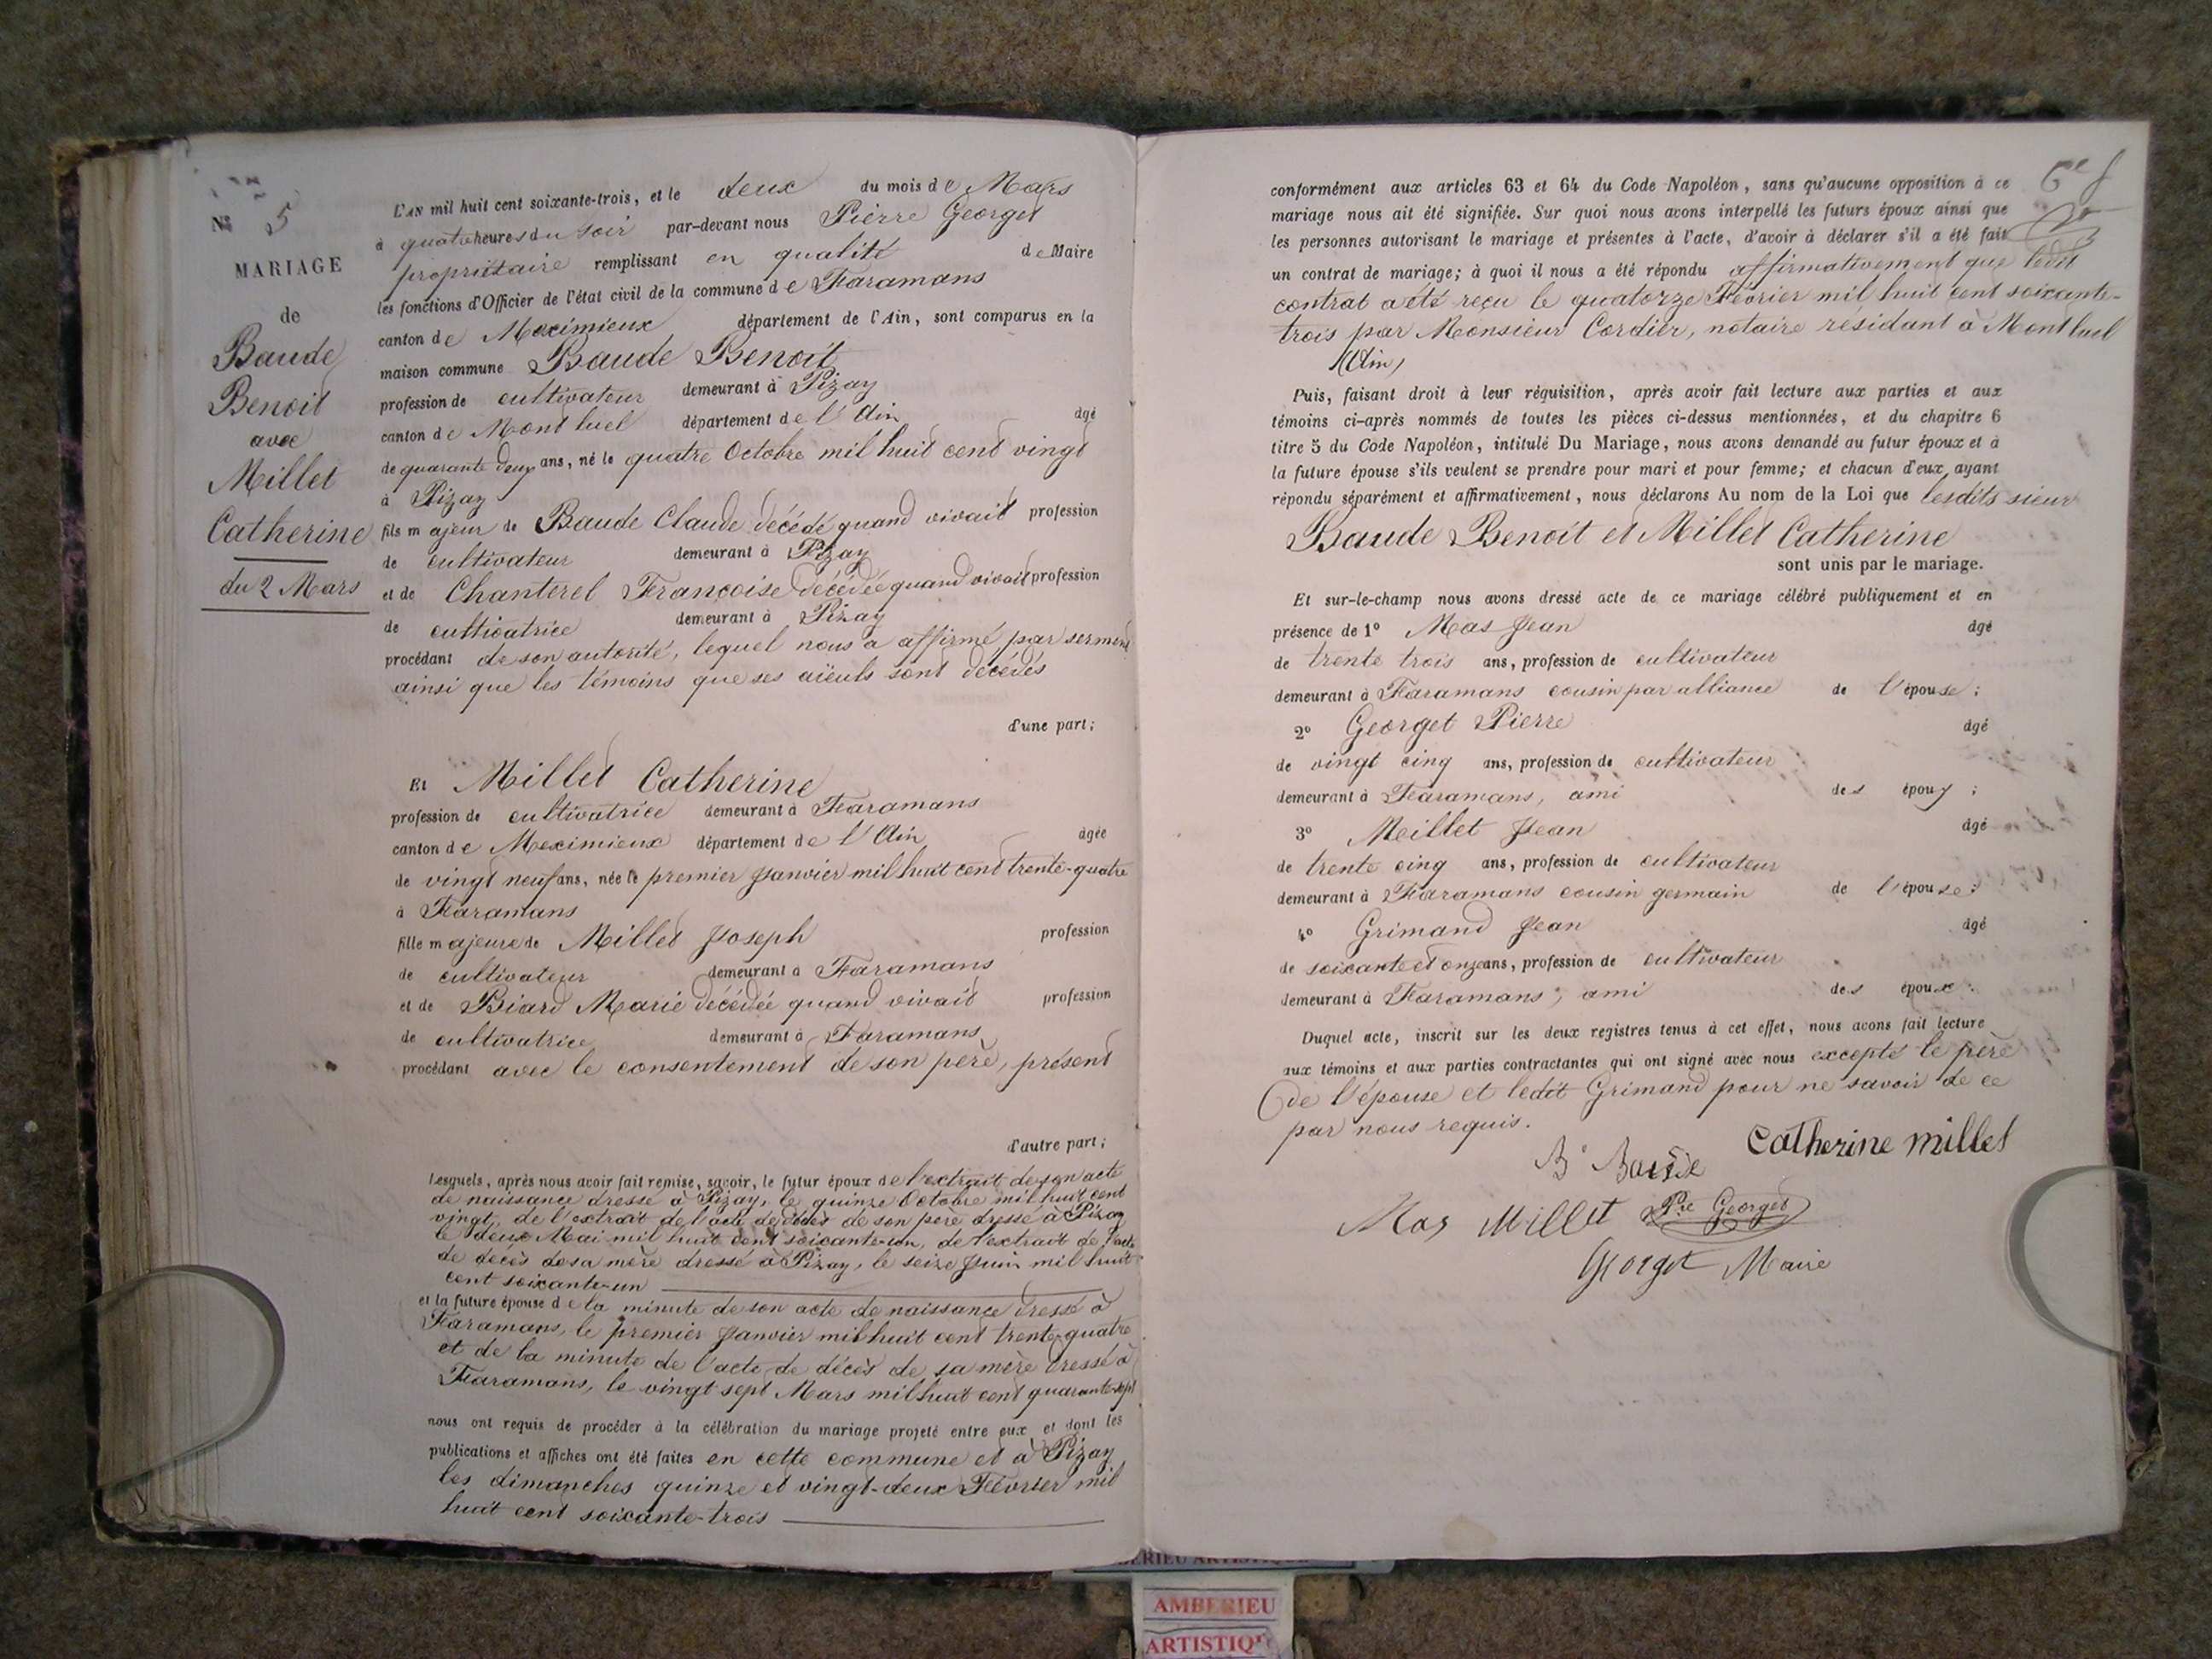 N° 5
MARIAGE
de
Baude
Benoit
avec
Millet
Catherine
du 2 Mars
L'AN mil huit cent soixante-trois, et le deux du mois de Mars
à quatre heures du soir par-devant nous Pierre Georget
propriétaire remplissant en qualité de Maire
les fonctions d'Officier de l'état civil de la commune de Faramans
canton de Meximieux département de l'Ain, sont comparus en la
maison commune Baude Benoit
profession de cultivateur demeurant à Pizay
canton de Montluel département de l'Ain âgé
de quarante deux ans, né le quatre Octobre mil huit cent vingt
à Pizay
fils majeur de Baude Claude décédé quand vivait profession
de cultivateur demeurant à Pizay
et de Chanterel Françoise décédée quand vivait profession
de cultivatrice demeurant à Pizay
procédant de son autorité, lequel nous a affirmé par serment
ainsi que les témoins que ses aïeuls sont décédés
d'une part;
Et Millet Catherine
profession de cultivatrice demeurant à Faramans
canton de Meximieux département de l'Ain âgée
de vingt neuf ans, née le premier Janvier mil huit cent trente-quatre
à Faramans
fille majeure de Millet Joseph profession
de cultivateur demeurant à Faramans
et de Biard Marie décédée quand vivait profession
de cultivatrice demeurant à Faramans
procédant avec le consentement de son père, présent
d'autre part;
Lesquels, après nous avoir fait remise, savoir, le futur époux de l'extrait de son acte
de naissance dressé à Pizay, le quinze Octobre mil huit cent
vingt, de l'extrait de l'acte de décès de son père dressé à Pizay
le deux Mai mil huit cent soixante-un, de l'extrait de l'acte
de décès de sa mère dressé à Pizay, le seize Juin mil huit
cent soixante-un
et la future épouse de la minute de son acte de naissance dressé à
Faramans, le premier Janvier mil huit cent trente-quatre
et de la minute de l'acte de décès de sa mère dressé à
Faramans, le vingt sept Mars mil huit cent quarante-sept
nous ont requis de procéder à la célébration du mariage projeté entre eux et dont les
publications et affiches ont été faites en cette commune et à Pizay
les dimanches quinze et vingt-deux Février mil
huit cent soixante-trois
conformément aux articles 63 et 64 du Code Napoléon, sans qu'aucune opposition à ce
mariage nous ait été signifiée. Sur quoi nous avons interpellé les futurs époux ainsi que
les personnes autorisant le mariage et présentes à l'acte, d'avoir à déclarer s'il a été fait
un contrat de mariage; à quoi il nous a été répondu affirmativement que ledit
contrat a été reçu le quatorze Février mil huit cent soixante-
trois par Monsieur Cordier, notaire résidant à Montluel
(Ain)
Puis, faisant droit à leur réquisition, après avoir fait lecture aux parties et aux
témoins ci-après nommés de toutes les pièces ci-dessus mentionnées, et du chapitre 6
titre 5 du Code Napoléon, intitulé Du Mariage, nous avons demandé au futur époux et à
la future épouse s'ils veulent se prendre pour mari et pour femme; et chacun d'eux ayant
répondu séparément et affirmativement, nous déclarons Au nom de la Loi que lesdits sieur
Baude Benoit et Millet Catherine
sont unis par le mariage.
Et sur-le-champ nous avons dressé acte de ce mariage célébré publiquement et en
présence de 1° Mas Jean âgé
de trente trois ans, profession de cultivateur
demeurant à Faramans cousin par alliance de l'épouse;
2° Georget Pierre âgé
de vingt cinq ans, profession de cultivateur
demeurant à Faramans, ami des époux;
3° Millet Jean âgé
de trente cinq ans, profession de cultivateur
demeurant à Faramans cousin germain de l'épouse;
4° Grimand Jean âgé
de soixante et onze ans, profession de cultivateur
demeurant à Faramans, ami des époux.
Duquel acte, inscrit sur les deux registres tenus à cet effet, nous avons fait lecture
aux témoins et aux parties contractantes qui ont signé avec nous excepté le père
de l'épouse et ledit Grimand pour ne savoir de ce
par nous requis.
Catherine Millet
B. Baude
Mas Millet Pre Georget
Georget Maire
AMBERIEU ARTISTIQUE
AMBERIEU
ARTISTIQU